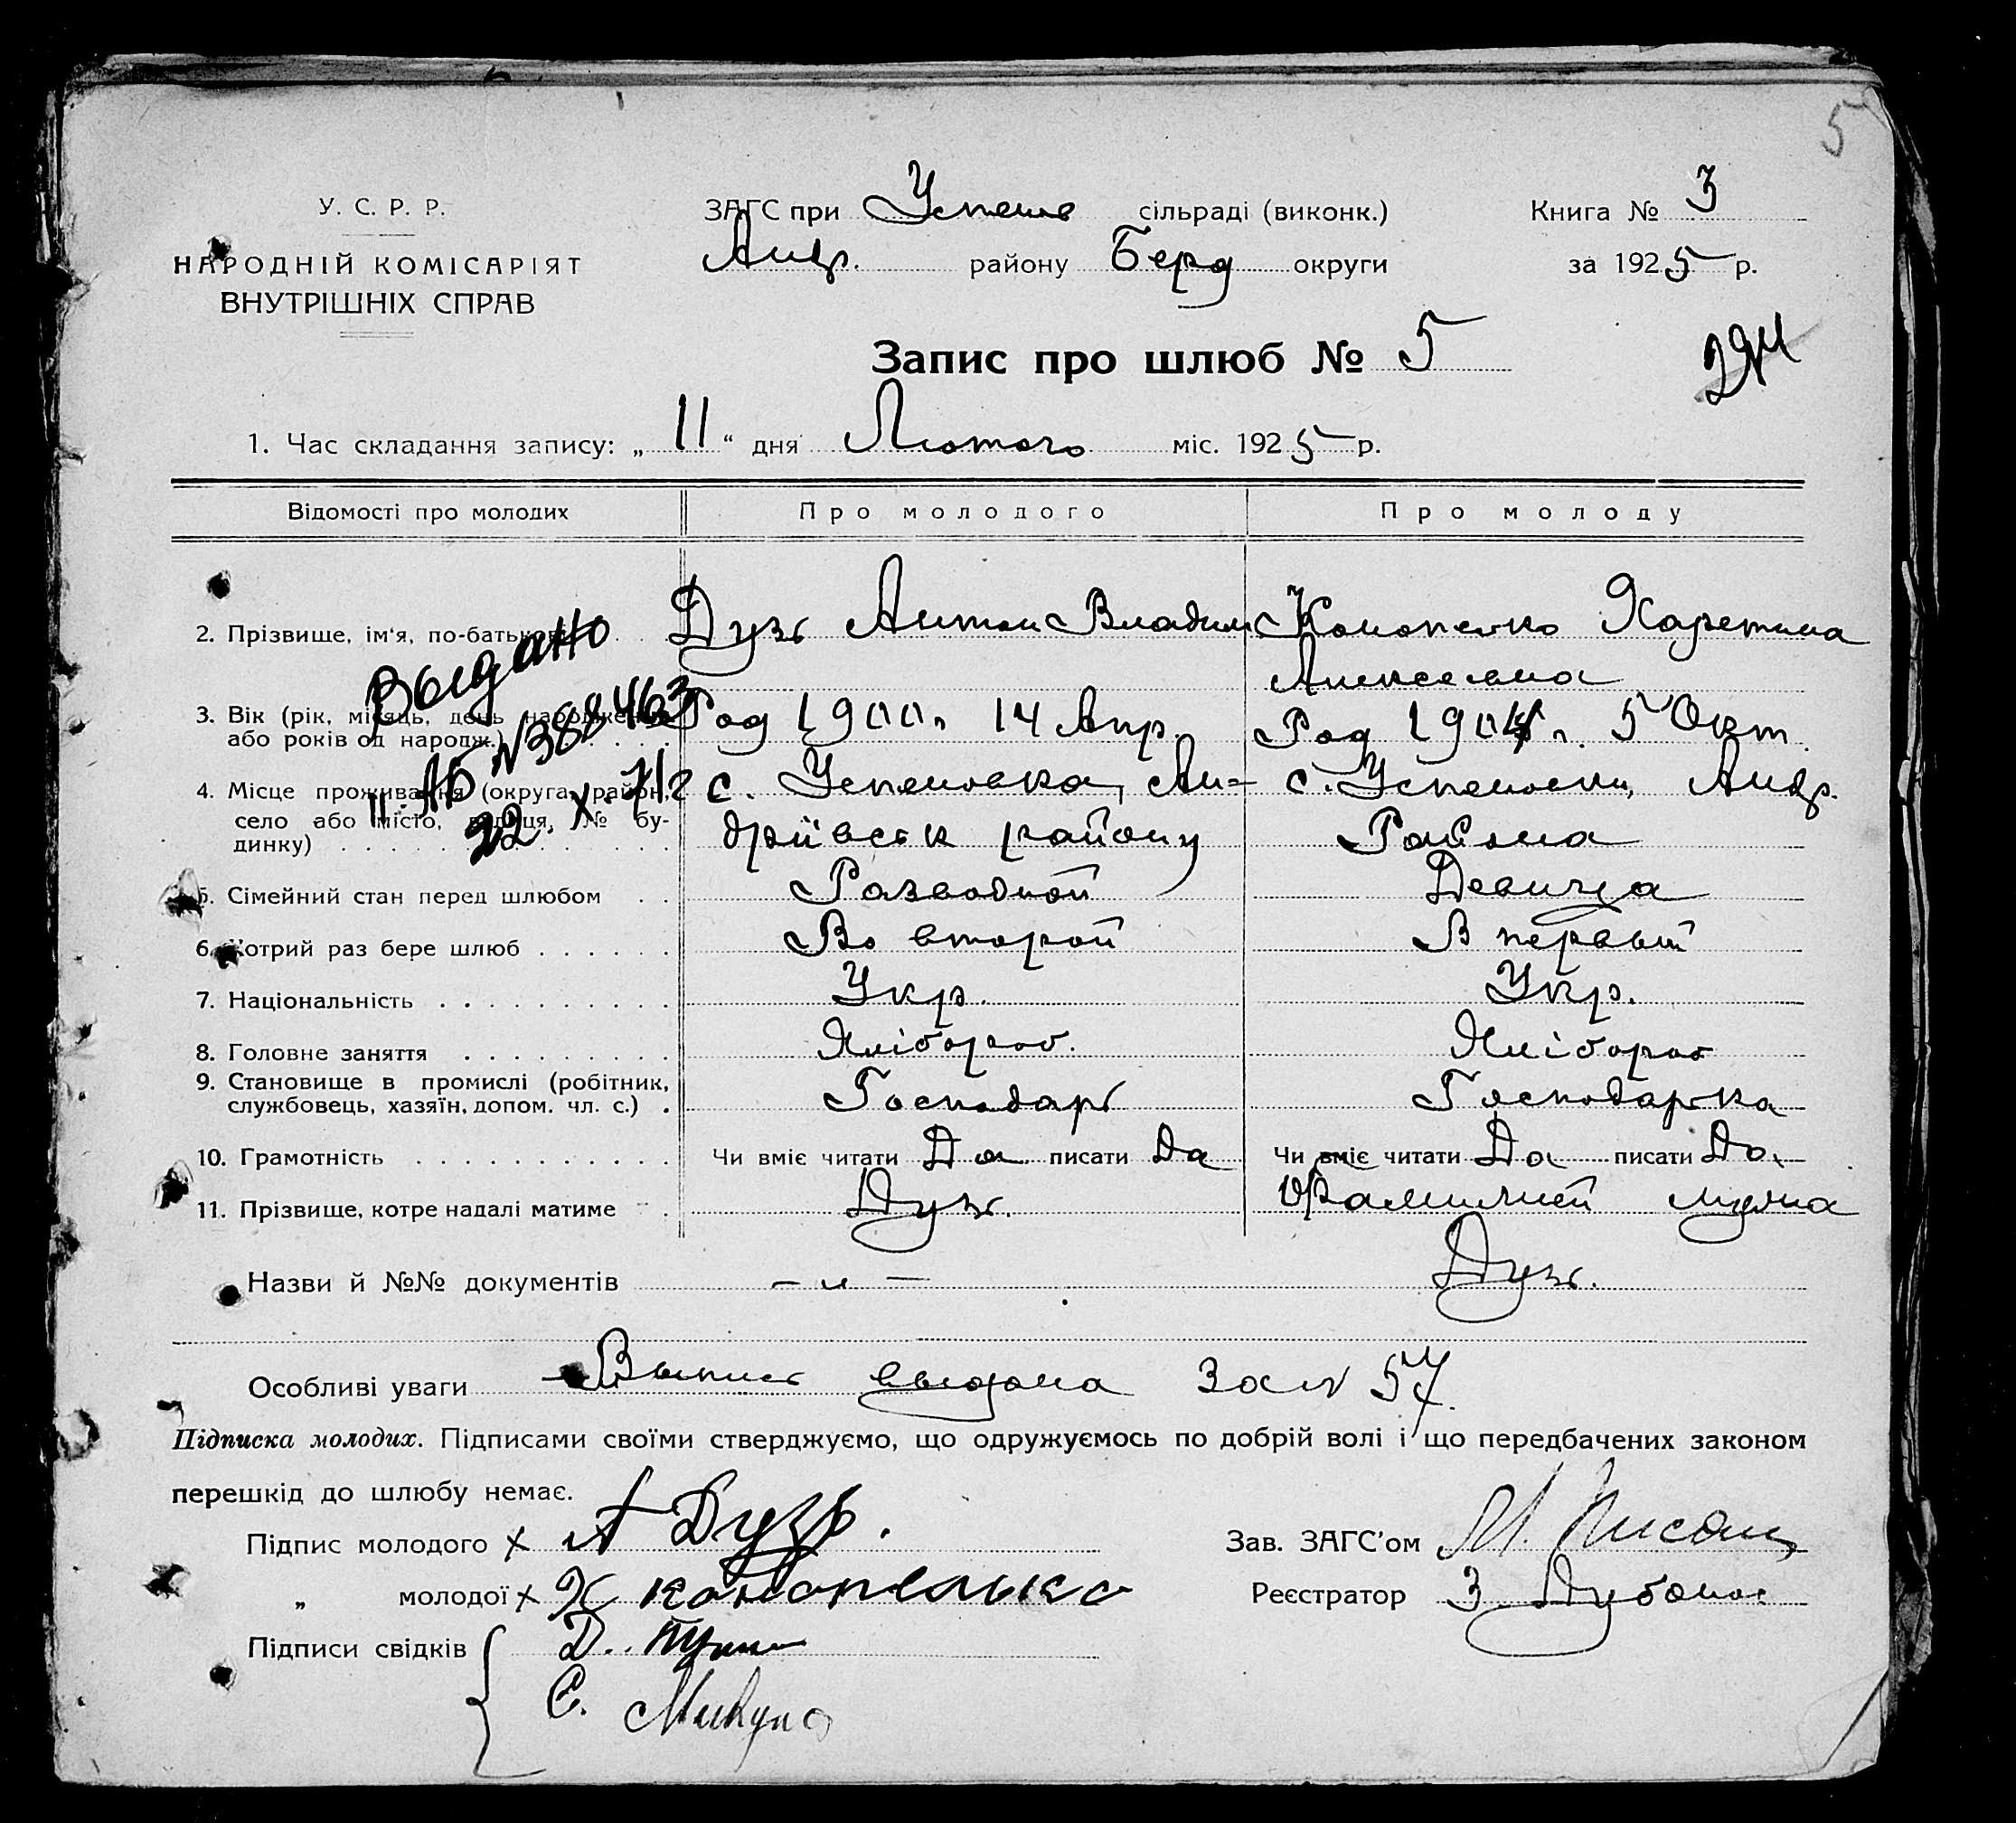 5
У. С. Р. Р.
НАРОДНІЙ КОМІСАРІЯТ
ВНУТРІШНІХ СПРАВ
ЗАГС при Успенів сільраді (виконк.)
Андр. району Берд округи
Книга № 3
за 1925 р.
Запис про шлюб № 5
294
1. Час складання запису: „11“ дня Лютого міс. 1925 р.
Відомості про молодих Про молодого Про молоду
2. Прізвище, ім'я, по-батькові Дузь Антон Владим Конопелько Харетина
Алексеевна
3. Вік (рік, місяць, день народження або років од народж.) Род 1900 г 14 Апр. Род 1904 г. 5 Окт.
4. Місце проживання (округа, район, село або місто, вулиця, № будинку) с. Успеновка, Ан= с. Успеновки, Андр.
дріївськ району Района
Выдано
II. АБ №388463
22. X. 71 г
5. Сімейний стан перед шлюбом Разводной Девица
6. Котрий раз бере шлюб Во второй В первый
7. Національність Укр. Укр.
8. Головне заняття Хлібороб. Хлібороб
9. Становище в промислі (робітник, службовець, хазяїн, допом. чл. с.) Господарь Господарка
10. Грамотність Чи вміє читати Да писати Да Чи вміє читати Да писати Да
11. Прізвище, котре надалі матиме Дузь. Фамилией мужа
Дузь.
Назви й №№ документів – „ –
Особливі уваги Выпись выдана За № 57
Підписка молодих. Підписами своїми стверджуємо, що одружуємось по добрій волі і що передбачених законом
перешкід до шлюбу немає.
Підпис молодого х А Дузь.
„ молодої х Х Конопелько
Підписи свідків Д.
С. Микула
Зав. ЗАГС'ом М.
Реєстратор З.